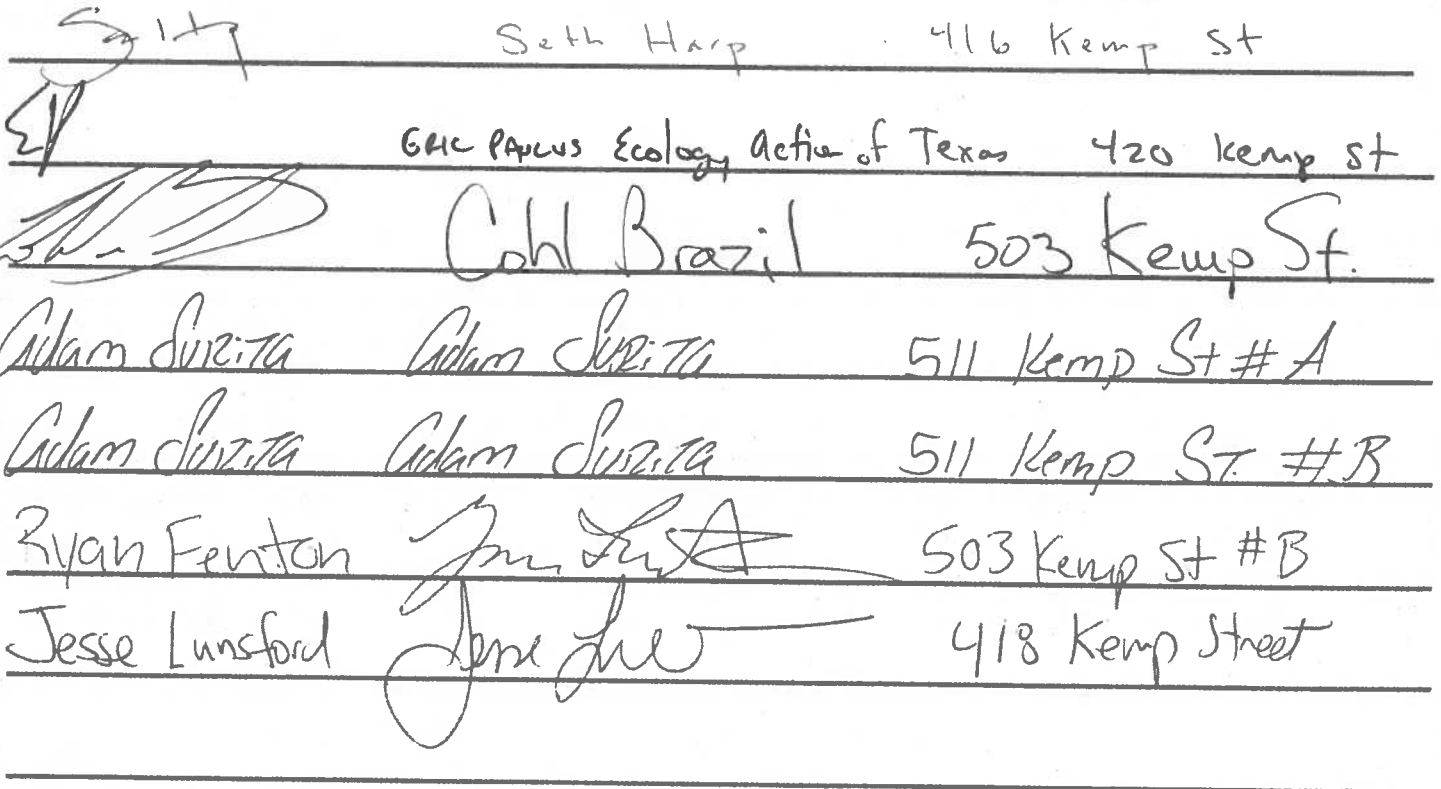 Seth Harp 416 Kemp St
ERIC PAULUS Ecology Action of Texas 420 Kemp St
Cohl Brazil 503 Kemp St.
Adam Surita Adam Surita 511 Kemp St # A
Adam Surita Adam Surita 511 Kemp St. # B
Ryan Fenton 503 Kemp St # B
Jesse Lunsford 418 Kemp Street